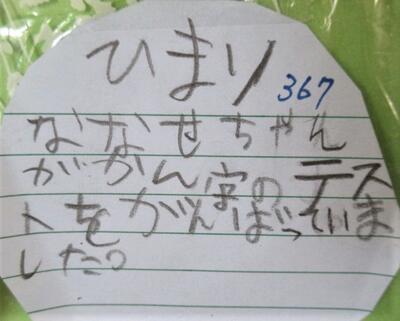 ひまり
367
ななせちゃん
がかん字のテス
トをがんばっていま
した。